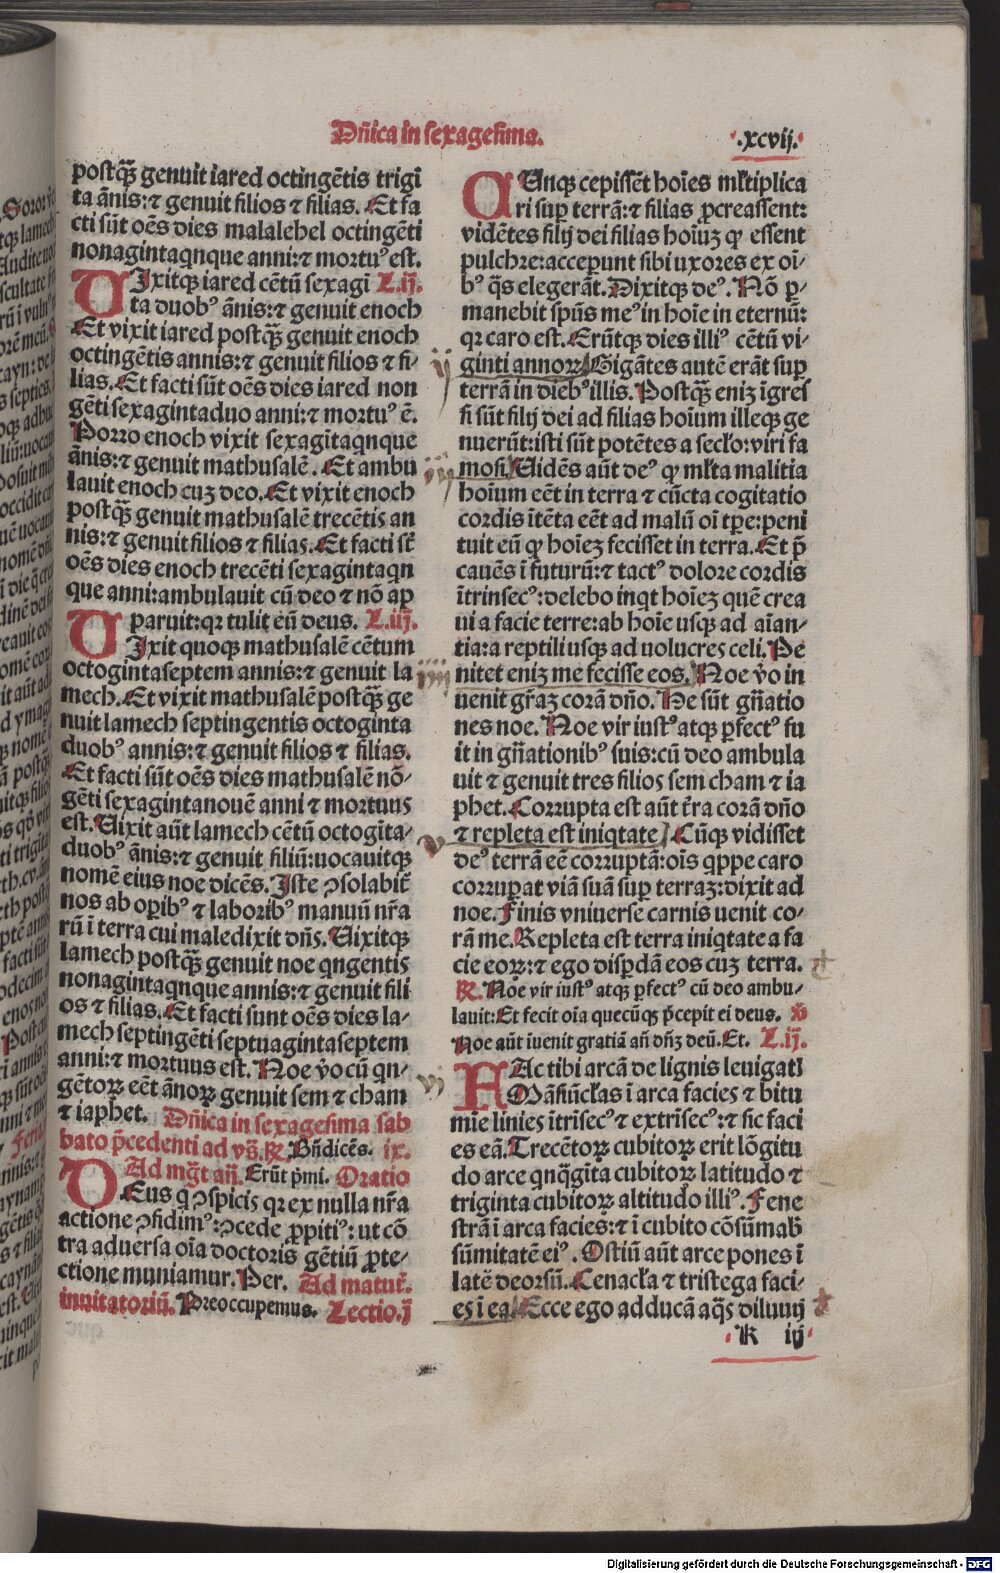 Dn̄ica in sexagesima.
.xcvij.
postq̄ȝ genuit iared octingētis trigī
ta ānis: ⁊ genuit filios ⁊ filias. Et fa
cti sūt oēs dies malalehel octingēti
nonagintaqnque anni: ⁊ mortuꝰ est.
VIxitqȝ iared cētū sexagī L.ij.
ta duobꝰ ānis: ⁊ genuit enoch
Et vixit iared postq̄ȝ genuit enoch
octingētis annis: ⁊ genuit filios ⁊ fi-
lias. Et facti sūt oēs dies iared non
gēti sexagintaduo anni: ⁊ mortuꝰ ē.
Porro enoch vixit sexagītaqnque
ānis: ⁊ genuit mathusalē. Et ambu
lauit enoch cuȝ deo. Et vixit enoch
postq̄ȝ genuit mathusalē trecētis an
nis: ⁊ genuit filios ⁊ filias. Et facti st̄
oēs dies enoch trecēti sexagintaqn
que anni: ambulauit cū deo ⁊ nō ap
paruit: qꝛ tulit eū deus. L.iij.
VIxit quoqȝ mathusalē cētum
octogintaseptem annis: ⁊ genuit la
mech. Et vixit mathusalē postq̄ȝ ge
nuit lamech septingentis octoginta
duobꝰ annis: ⁊ genuit filios ⁊ filias.
Et facti sūt oēs dies mathusalē nō-
gēti sexagintanouē anni ⁊ mortuus
est. Uixit aūt lamech cētū octogīta-
duobꝰ ānis: ⁊ genuit filiū: uocauitqȝ
nomē eius noe dicēs. Iste ↄsolabit̄
nos ab oꝑibꝰ ⁊ laboribꝰ manuū nr̄a
rū ī terra cui maledixit dn̄s. Uixitqȝ
lamech postq̄ȝ genuit noe qngentis
nonagintaqnque annis: ⁊ genuit fili
os ⁊ filias. Et facti sunt oēs dies la-
mech septingēti septuagintaseptem
anni: ⁊ mortuus est. Noe v̊o cū qn-
gētoꝝ eēt ānoꝝ genuit sem ⁊ cham
⁊ iaphet. Dn̄ica in sexagesima sab
bato p̄cedenti ad vs̄. ℟. Bn̄dicēs. ix.
Ad mg̅t an̄. Erūt p̄mi. Oratio
DEus q ↄspicis qꝛ ex nulla nr̄a
actione ↄfidimꝰ: ↄcede ꝓpitiꝰ: ut cō
tra aduersa oīa doctoris gētiū ꝓte-
ctione muniamur. Per. Ad matut̄.
inuitatoriū. Preoccupemus. Lectio.j
CUnqȝ cepissēt hoīes ml̄tiplica
ri suꝑ terrā: ⁊ filias ꝓcreassent:
vidētes filij dei filias hoīuȝ qꝙ essent
pulchre: acceperunt sibi uxores ex oī-
bꝰ q̄s elegerāt. Dixitqȝ deꝰ. Nō ꝑ-
manebit spūs meꝰ in hoīe in eternū:
qꝛ caro est. Erūtqȝ dies illiꝰ cētū vi-
ij
ginti annoꝝ Gigātes autē erāt suꝑ
terrā in diebꝰ illis. Postq̄ȝ eniȝ īgres
si sūt filij dei ad filias hoīum illeqȝ ge
nuerūt: isti sūt potētes a secl̄o: viri fa
iij
mosi. Uidēs aūt deꝰ ꝙ ml̄ta malitia
hoīum eēt in terra ⁊ cūcta cogitatio
cordis ītēta eēt ad malū oī tꝑe: peni
tuit eū ꝙ hoīeȝ fecisset in terra. Et p̄
cauēs ī futurū: ⁊ tactꝰ dolore cordis
ītrinsecꝰ: delebo inqt hoīeȝ quē crea
ui a facie terre: ab hoīe usqȝ ad aīan-
tia: a reptili usqȝ ad uolucres celi. Pe
iiij
nitet eniȝ me fecisse eos. Noe v̊o in
uenit gr̄aȝ corā dn̄o. He sūt gn̄atio
nes noe. Noe vir iustꝰ atqȝ ꝑfectꝰ fu
it in gn̄ationibꝰ suis: cū deo ambula
uit ⁊ genuit tres filios sem cham ⁊ ia
phet. Corrupta est aūt t̄ra corā dn̄o
v
⁊ repleta est iniqtate. Cūqȝ vidisset
deꝰ terrā eē corruptā: oīs qppe caro
corruꝑat viā suā suꝑ terraȝ: dixit ad
noe. Finis vniuerse carnis uenit co-
rā me. Repleta est terra iniqtate a fa
cie eoꝝ: ⁊ ego disꝑdā eos cuȝ terra.
℟. Noe vir iustꝰ atqȝ ꝑfectꝰ cū deo ambu-
lauit: Et fecit oīa quecūqȝ p̄cepit ei deus. ℣
Noe aūt iuenit gratiā an̄ dn̄ȝ deū. Et. L.ij.
vi
FAc tibi arcā de lignis leuigatī
Māsiūcl̄as ī arca facies ⁊ bitu
mīe linies ītrisecꝰ ⁊ extrīsecꝰ: ⁊ sic faci
es eā. Trecētoꝝ cubitoꝝ erit lōgitu
do arce qnq̄gīta cubitoꝝ latitudo ⁊
triginta cubitoꝝ altitudo illiꝰ. Fene
strā ī arca facies: ⁊ ī cubito cōsūmab̄
sūmitatē eiꝰ. Ostiū aūt arce pones ī
latē deorsū. Cenacl̄a ⁊ tristega faci-
es ī ea Ecce ego adducā aq̄s diluuij
K iij
Digitalisierung gefördert durch die Deutsche Forschungsgemeinschaft - DFG